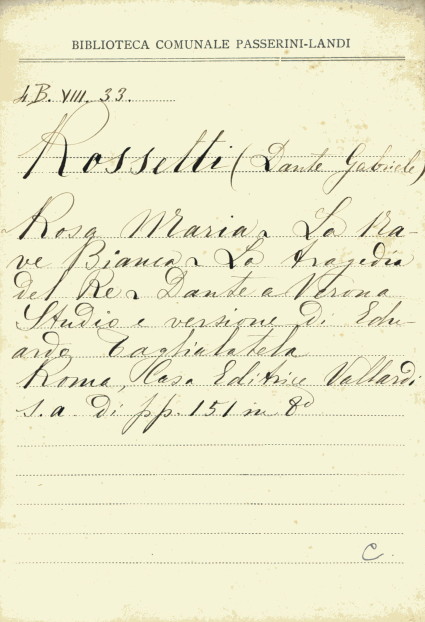 BIBLIOTECA COMUNALE PASSERINI-LANDI
4B. VIII. 33.
Rossetti (Dante Gabriele)
Rosa Maria - La Na-
ve Bianca - La tragedia
del Re - Dante a Verona
Studio e versione di Edu-
ardo Taglialatela
Roma, Casa Editrice Vallardi
s.a. di pp. 151 in 8°
C.